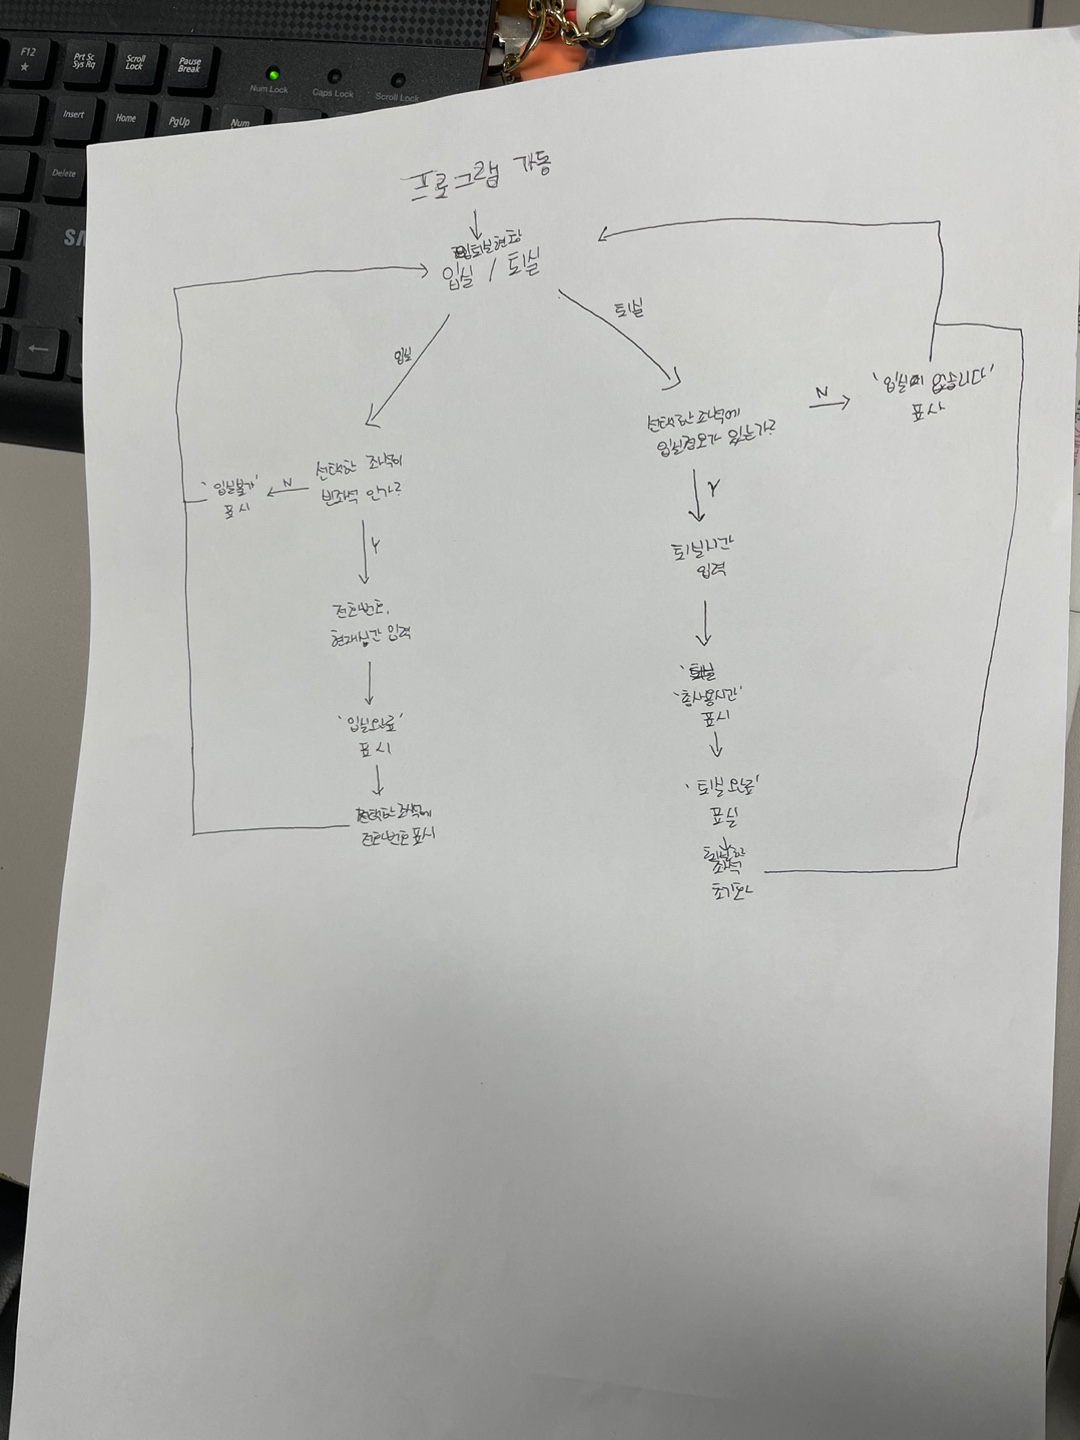 F12
Prt Sc
Sys Rq
Scroll
Lock
Pause
Break
Num Lock
Caps Lock
Scroll Lock
Insert
Home
PgUp
Num
Delete
프로그램 가동
입퇴실현황
입실 / 퇴실
입실
퇴실
선택한 좌석이
빈좌석 인가?
N
'입실불가'
표시
Y
전화번호,
현재시간 입력
'입실완료'
표시
선택한 좌석에
전화번호 표시
선택한 좌석에
입실정보가 있는가?
N
없습니다'
표시
Y
퇴실시간
입력
'총사용시간'
표시
'퇴실완료'
표실
퇴실한
좌석
초기화